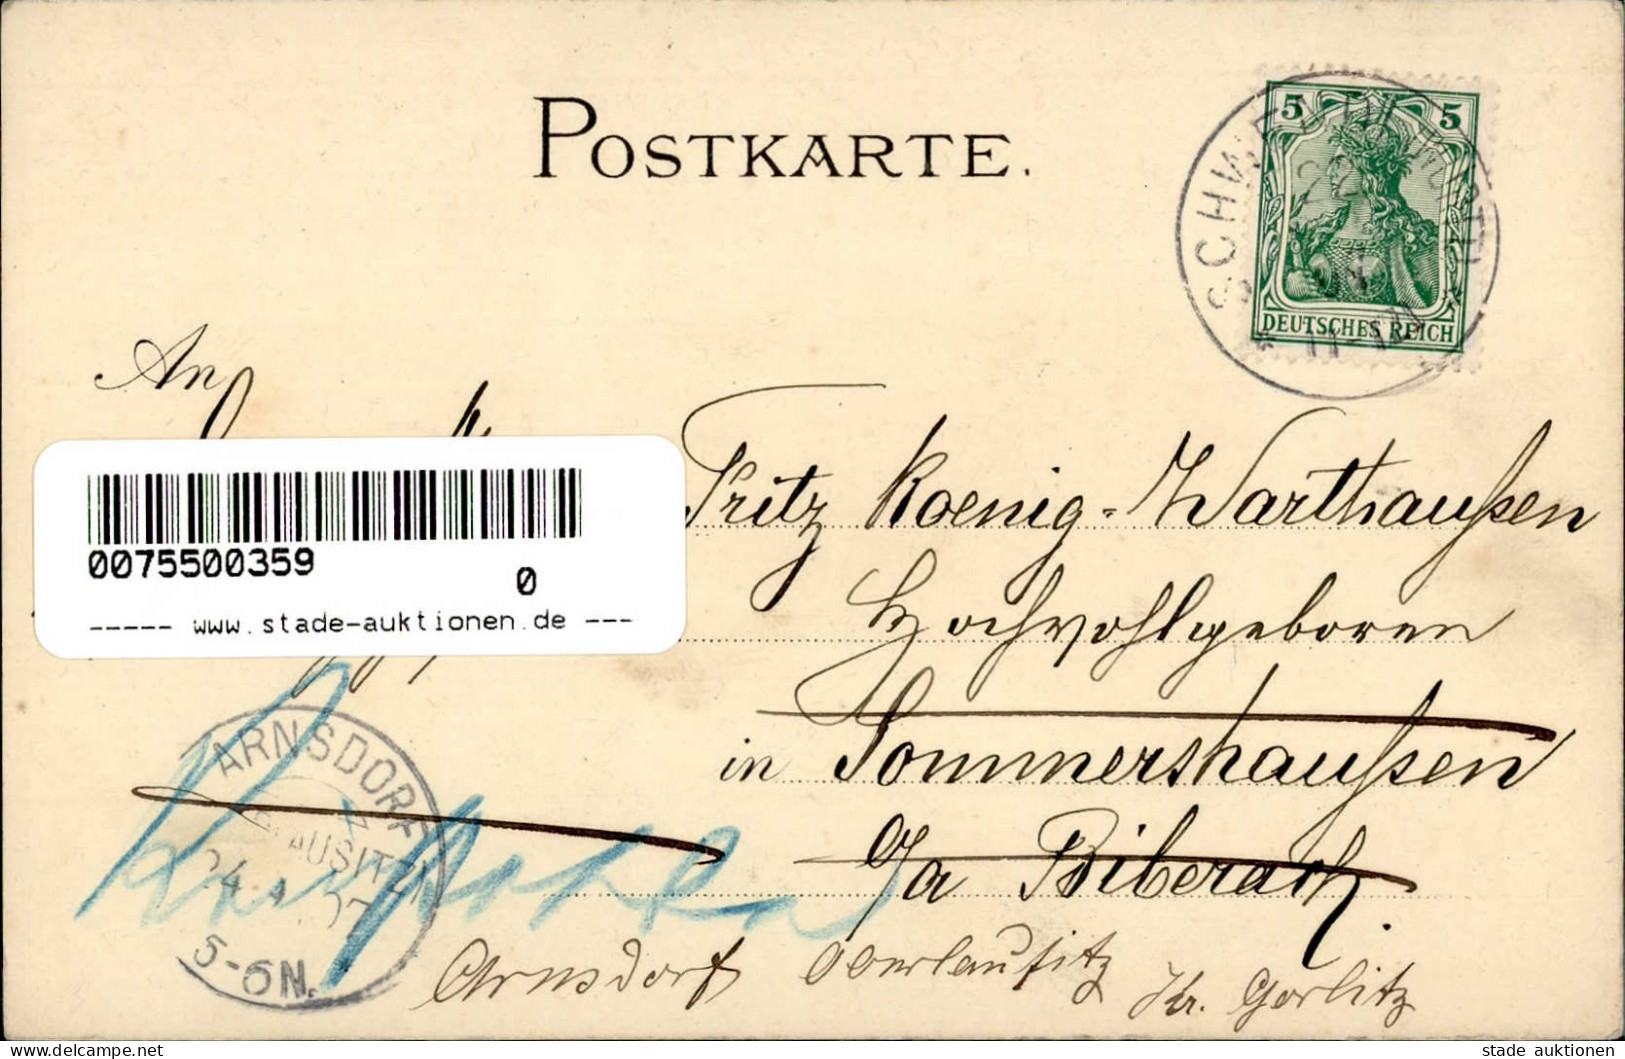 POSTKARTE.
5 5
DEUTSCHES REICH
11-12
An
Fritz Koenig-Warthausen
0075500359
0
----- www.stade-auktionen.de ---
Hochwohlgeboren
in Sommershausen
a/a Biberach.
ARNSDORF
LAUSITZ
24.4.07
5-6N.
Arnsdorf Oberlausitz Kr. Görlitz
delcampe.net
stade auktionen